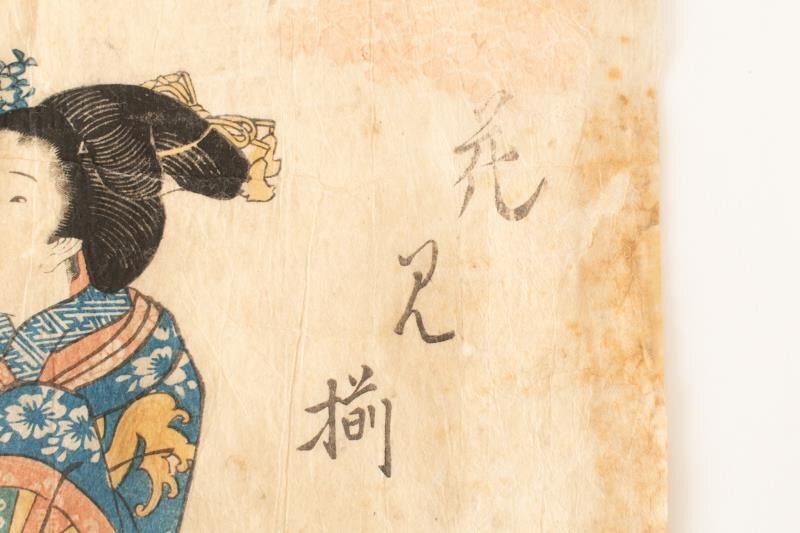 花見揃